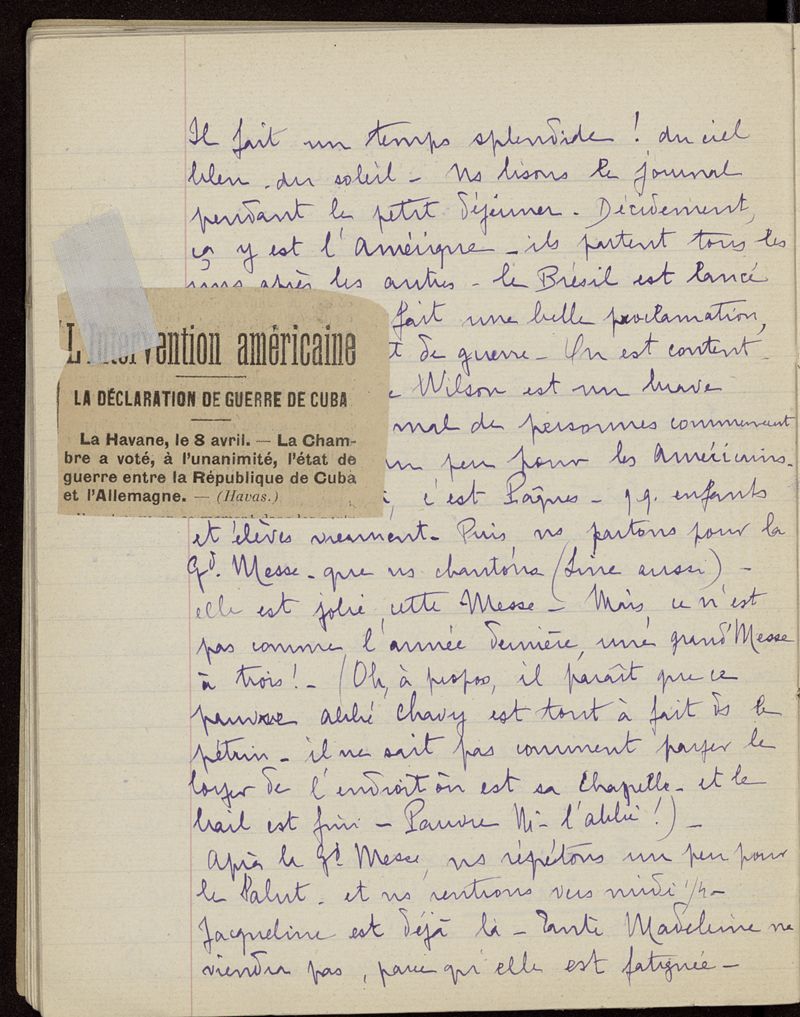 Il fait un temps splendide ! du ciel
bleu. du soleil - ns lisons le journal
pendant le petit déjeuner. Décidement,
ça y est l'Amérique - ils partent tous les
uns après les autres - le Brésil est lancé
fait une belle proclamation,
t de guerre - On est content
Wilson est un brave
mal de personnes commencent
un peu pour les Américains.
c'est Pâques - qq. enfants
et élèves viennent - Puis ns partons pour la
Gd. Messe - que ns chantons (Line aussi) -
elle est jolie, cette Messe - Mais ce n'est
pas comme l'année dernière, une grand'Messe
à trois ! - (Oh, à propos, il paraît que ce
pauvre abbé Chavy est tout à fait ds le
pétrin - il ne sait pas comment payer le
loyer de l'endroit où est sa Chapelle - et le
bail est fini - Pauvre M- l'abbé !) -
Après la Gd Messe, ns répétons un peu pour
le Salut - et ns rentrons vers midi 1/4 -
Jacqueline est déjà là - Tante Madeleine ne
viendra pas, parce qu'elle est fatiguée -
L'Intervention américaine
LA DÉCLARATION DE GUERRE DE CUBA
La Havane, le 8 avril. — La Cham-
bre a voté, à l'unanimité, l'état de
guerre entre la République de Cuba
et l'Allemagne. — (Havas.)